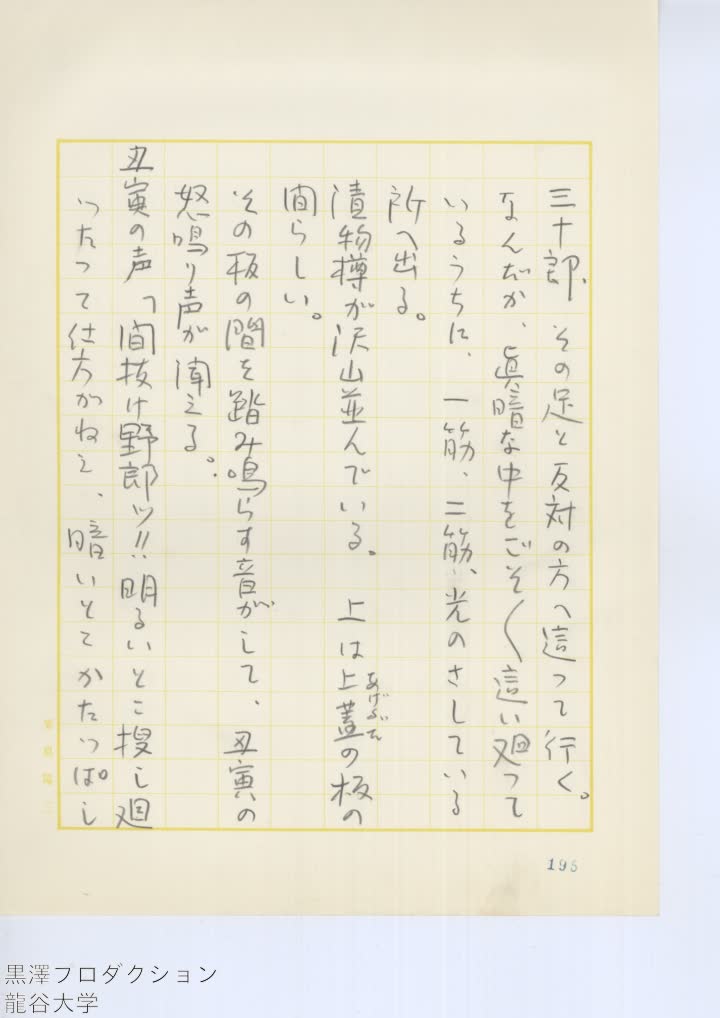 三十郎、その足と反対の方へ這って行く。
なんだか、眞暗な中をごそ〱這い廻って
いるうちに、一筋、二筋、光のさしている
所へ出る。
漬物樽が沢山並んでいる。　上は上蓋の板の
あげぶた
間らしい。
その板の間を踏み鳴らす音がして、丑寅の
怒鳴り声が聞える。
丑寅の声「間抜け野郎ッ!!明るいとこ捜し廻
ったって仕方がねえ、暗いとこかたっぱし
195
黒澤プロダクション
龍谷大学